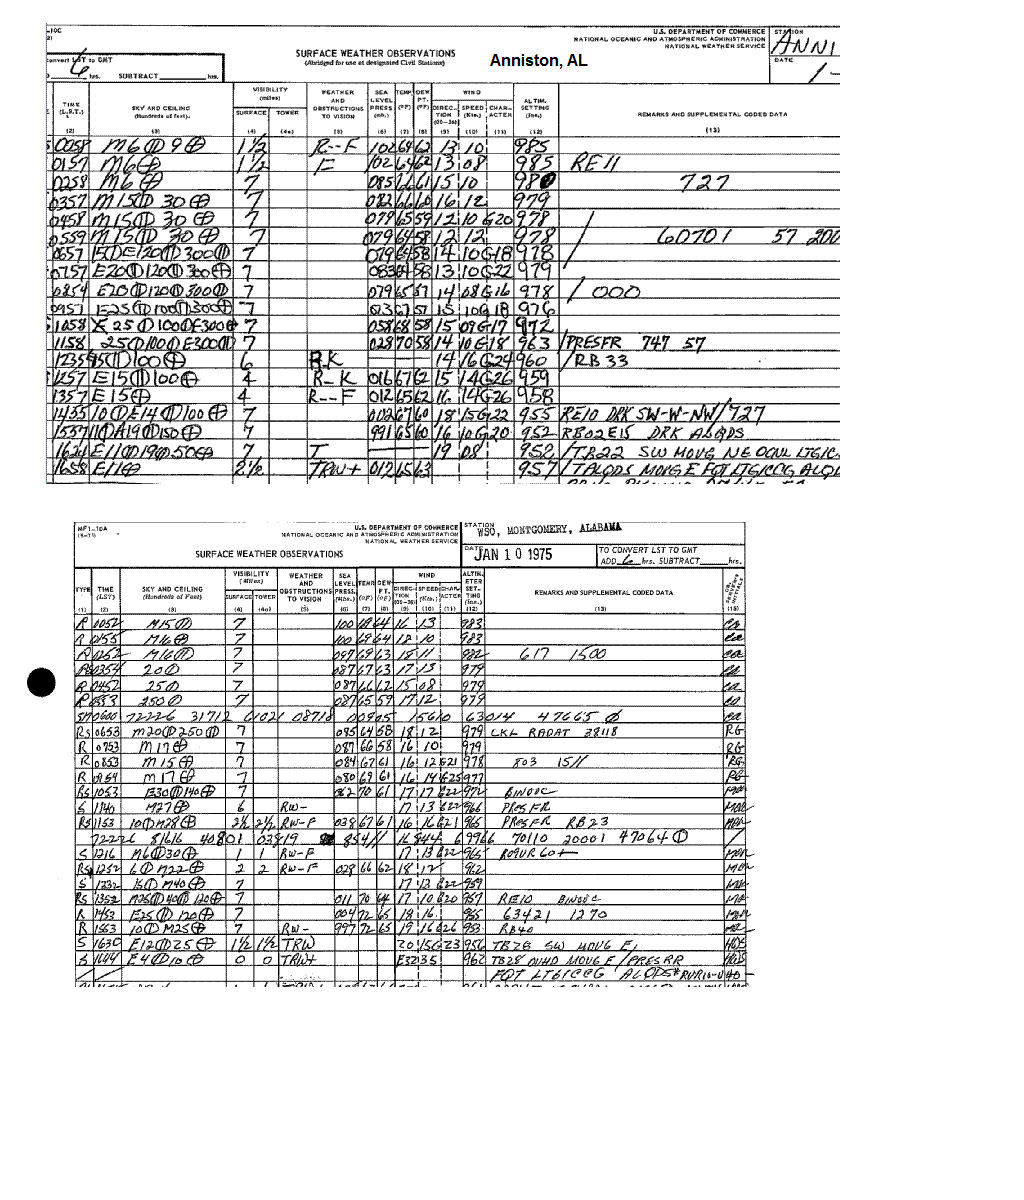 -10C
U.S. DEPARTMENT OF COMMERCE
NATIONAL OCEANIC AND ATMOSPHERIC ADMINISTRATION
NATIONAL WEATHER SERVICE
STATION
ANNI
SURFACE WEATHER OBSERVATIONS
(Abridged for use at designated Civil Stations)
Anniston, AL
DATE
1/
convert LST to GMT
6 hrs. SUBTRACT hrs.
TIME (L.S.T.) SKY AND CEILING (Hundreds of Feet) VISIBILITY (miles) SURFACE TOWER WEATHER AND OBSTRUCTIONS TO VISION SEA LEVEL PRESS (mb.) TEMP (°F) DEW PT. (°F) WIND DIRECTION (00-36) SPEED (Ktn.) CHARACTER ALTIM. SETTING (Ins.) REMARKS AND SUPPLEMENTAL CODED DATA
(2) (3) (4) (4a) (5) (6) (7) (8) (9) (10) (11) (12) (13)
0058 M6⦶9⊕ 1 1/2 R--F 102 64 62 13 10 985
0157 M6⊕ 1 1/2 F 102 64 62 13 08 985 RE11
0258 M6⊕ 7 085 61 15 10 980 727
0357 M15⦶ 30⊕ 7 082 66 60 16 12 979
0458 M15⦶ 30⊕ 7 079 65 59 12 10 G20 978 /
0559 M15⦶ 30⊕ 7 079 64 58 12 12 978 / 60701 57 200
0657 15⦶E120⦶300⦶ 7 079 64 58 14 10 G18 978
0757 E20⦶120⦶300⊕ 7 083 64 58 13 10 G22 979
0854 E20⦶120⦶300⦶ 7 079 65 57 14 08 G16 978 / 000
0957 E25⦶100⦶300⊕ 7 073 67 57 15 10 G18 976
1058 E25⦶100⦶E300⊕ 7 058 68 58 15 09 G17 972
1158 25⦶100⦶E300⦶ 7 028 70 58 14 10 G18 963 /PRESFR 747 57
1235 15⦶100⊕ 6 R-K 14 16 G24 960 /RB33
1257 E15⦶100⊕ 4 R-K 016 67 62 15 14 G26 959
1357 E15⊕ 4 R--F 012 65 62 16 14 G26 958
1455 10⦶E14⦶100⊕ 7 002 67 60 18 15 G22 955 RE10 DRK SW-W-NW/727
1557 11⦶A19⦶150⊕ 7 991 65 60 16 10 G20 952 RB02E15 DRK ALQDS
1624 E11⦶19⦶50⊕ 7 T 19 08 952 /TB22 SW MOVG NE OCNL LTGIC
1658 E11⊕ 2 1/2 TRW+ 012 65 63 957 /TALQDS MOVG E FQT LTGICCG ALQD
MF1-10A
U.S. DEPARTMENT OF COMMERCE
NATIONAL OCEANIC AND ATMOSPHERIC ADMINISTRATION
NATIONAL WEATHER SERVICE
STATION
WSO, MONTGOMERY, ALABAMA
SURFACE WEATHER OBSERVATIONS
DATE
JAN 10 1975
TO CONVERT LST TO GMT
ADD 6 hrs. SUBTRACT hrs.
TYPE TIME (LST) SKY AND CEILING (Hundreds of Feet) VISIBILITY (Miles) SURFACE TOWER WEATHER AND OBSTRUCTIONS TO VISION SEA LEVEL PRESS. (Mbs.) TEMP. (°F) DEW PT. (°F) WIND DIRECTION (00-36) SPEED (Kts) CHARACTER ALTIMETER SETTING (Ins.) REMARKS AND SUPPLEMENTAL CODED DATA OBSERVER'S INITIALS
(1) (2) (3) (4) (4a) (5) (6) (7) (8) (9) (10) (11) (12) (13) (15)
R 0052 M15⊕ 7 100 69 64 16 13 983 ea
R 0155 M16⊕ 7 100 69 64 18 10 983 ea
R 0252 M16⦶ 7 097 69 63 18 11 982 617 1500 ea
RS 0354 20⦶ 7 087 67 63 17 13 979 ea
R 0452 25⦶ 7 087 66 62 15 08 979 ea
R 0553 250⦶ 7 087 65 59 17 12 979 ea
SM 0600 72226 31712 61021 08718 15610 63014 47665 ea
RS 0653 M20⦶250⦶ 7 085 64 58 18 12 979 CKL RADAT 28118 RG
R 0753 M17⊕ 7 087 66 58 16 10 979 RG
R 0853 M15⊕ 7 084 67 61 16 12 G21 978 803 15// RG
R 0954 M17⊕ 7 080 69 61 16 14 G25 977 RG
RS 1053 E30⦶140⊕ 7 062 70 61 17 17 G22 972 BINOVC
S 1140 M27⊕ 6 RW- 17 13 G22 966 PRESFR
RS 1153 10⦶M28⊕ 2 1/2 2 1/2 RW-F 038 67 61 16 16 G21 965 PRESFR RB23
72226 81616 40801 03819 854// 69966 70110 20001 47064
S 1216 M6⦶30⊕ 1 1 RW-F 17 13 G22 965 R09VR60+
RS 1252 6⦶M22⊕ 2 2 RW-F 028 66 62 18 12 962
S 1332 15⦶M40⊕ 7 17 13 G22 959
RS 1352 M25⦶40⦶120⊕ 7 011 70 64 17 10 G20 957 RE10 BINOVC
R 1453 E25⦶120⊕ 7 004 72 65 18 16 955 63421 1270
R 1553 10⦶M25⊕ 7 RW- 997 72 65 19 16 G26 953 RB40
S 1630 E12⦶25⊕ 1 1/2 1 1/2 TRW 20 15 G23 956 TB26 SW MOVG E
S 1644 E4⦶10⊕ 0 0 TRW+ E32 35 962 TB28 OVHD MOVG E/PRESRR
FQT LTGICCG ALQDS